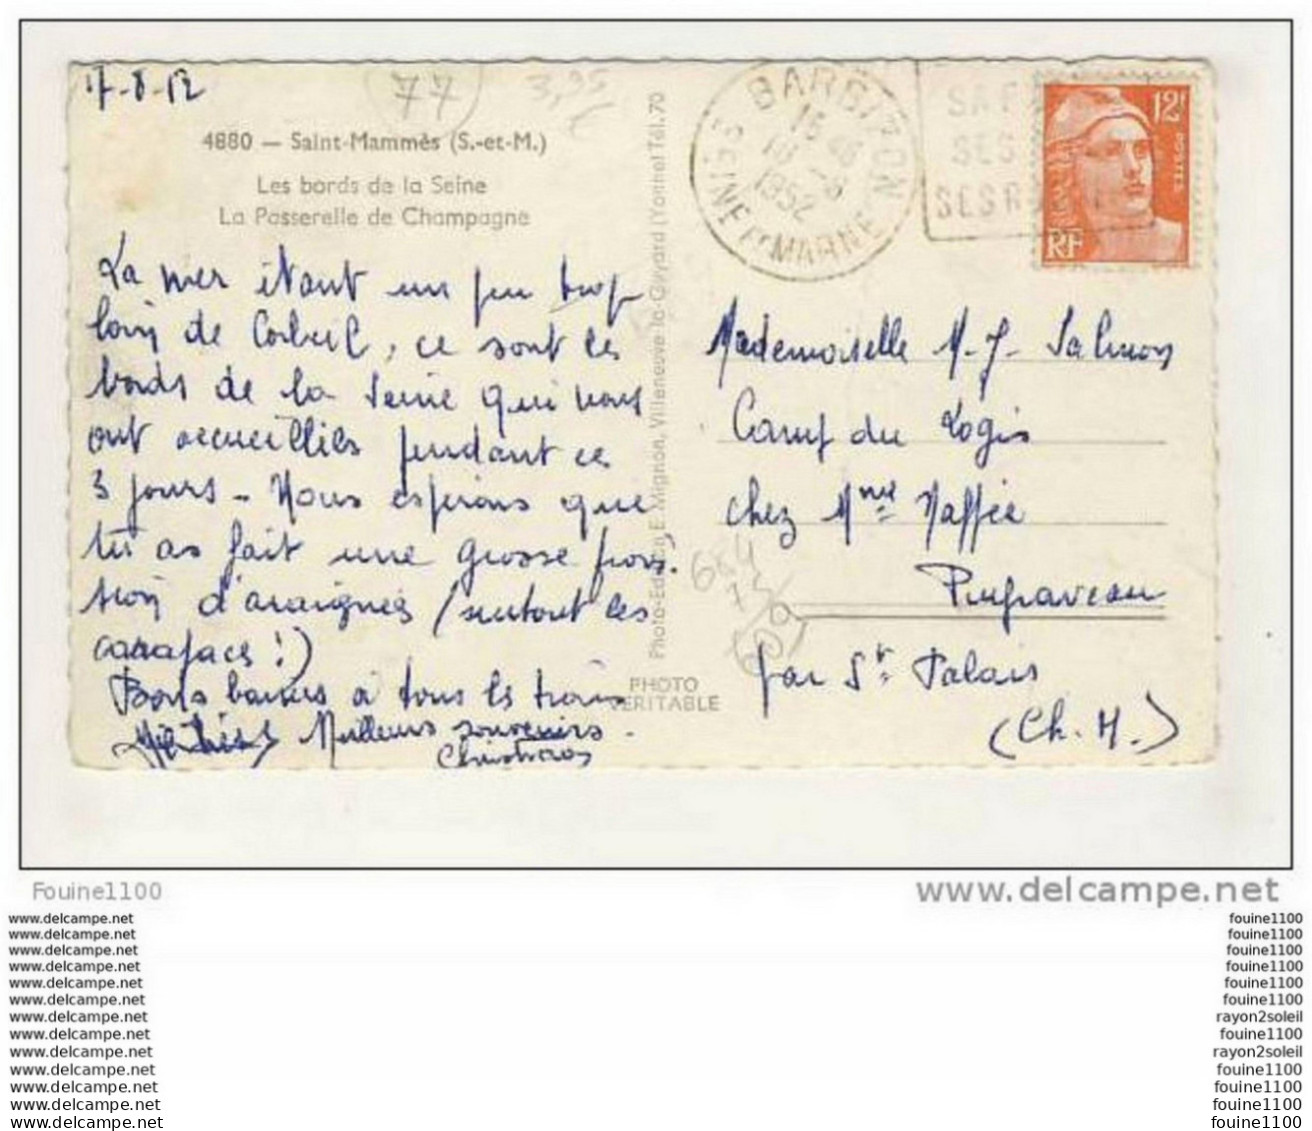 17-8-52
77
3,95
€
4880 — Saint-Mammès (S.-et-M.)
Les bords de la Seine
La Passerelle de Champagne
La mer étant un peu trop
loin de Corbeil, ce sont les
bords de la Seine qui nous
ont accueillies pendant ces
3 jours - Nous espérons que
tu as fait une grosse provi-
sion d'araignées (surtout les
carapaces !)
Bons baisers à tous les trois
Meilleurs souvenirs.
PHOTO
VERITABLE
Photo-Edition E. Mignon, Villeneuve-la-Guyard (Yonne) Tél. 70
BARBIZON
SEINE ET MARNE
1952
SES
12F
POSTES
RF
Mademoiselle M-J- Salmon
Camp du Logis
chez Mme Maffée
par St Palais
(Ch. M.)
Fouine1100
www.delcampe.net
www.delcampe.net
fouine1100
www.delcampe.net
fouine1100
www.delcampe.net
fouine1100
www.delcampe.net
fouine1100
www.delcampe.net
fouine1100
www.delcampe.net
fouine1100
www.delcampe.net
rayon2soleil
www.delcampe.net
fouine1100
www.delcampe.net
rayon2soleil
www.delcampe.net
fouine1100
www.delcampe.net
fouine1100
www.delcampe.net
fouine1100
www.delcampe.net
fouine1100